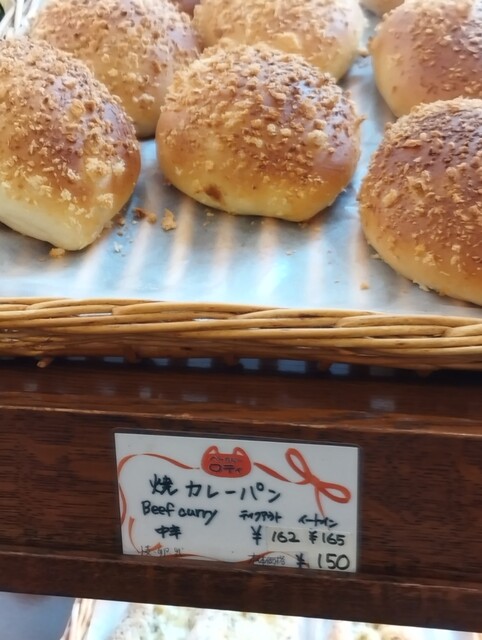 ロティ
焼カレーパン
Beef curry テイクアウト イートイン
中辛 ¥162 ¥165
¥150